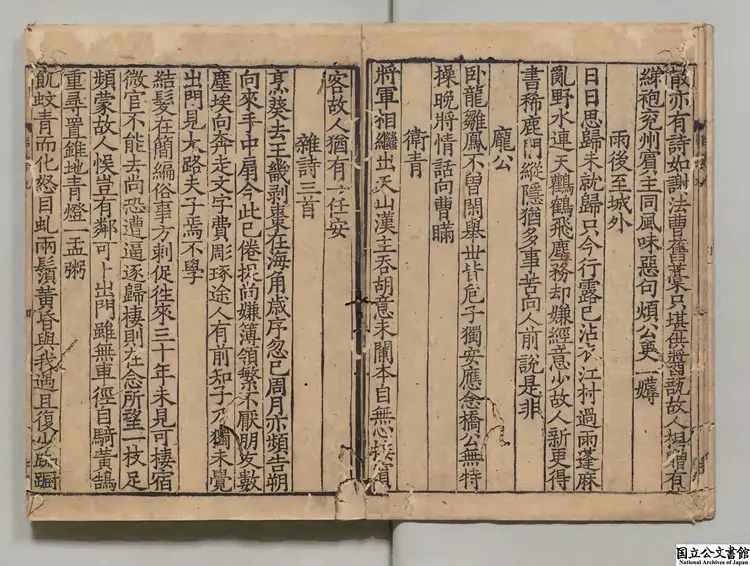 散亦有詩如謝法曹舊藁只堪供醬瓿故人相贈有
綈袍兖州賓主同風味惡句煩公更一
雨後至城外
日日思歸未就歸只今行露已沾衣江村過雨蓬麻
亂野水連天鸛鶴飛塵務却嫌經意少故人新更得
書稀鹿門縱隱猶多事苦向人前說是非
龐公
卧龍雛鳳不曾閑舉世皆危子獨安應念橋公無特
操晚將情話向曹瞞
衛青
將軍相繼出天山漢主吞胡意未闌本自無心接賓
客故人猶有一任安
雜詩三首
烹葵去王畿剥棗在海角歲序忽已周月亦頻告朔
向來手中扇今此已倦捉尚嫌簿領繁不厭朋友數
塵埃向奔走文字費彫琢途人有前知子乃獨未覺
出門見大路夫子焉不學
結髮在簡編俗事方刺促往來三十年未見可棲宿
微官不能去尚恐遭逼逐歸棲則在念所望一枝足
頻蒙故人悮豈有鄰可卜出門雖無車徑自騎黄鵠
重尋置錐地青燈一盂粥
飢蚊青而化怒目虬兩鬚黄昏與我遇且復少踟蹰
国立公文書館
National Archives of Japan